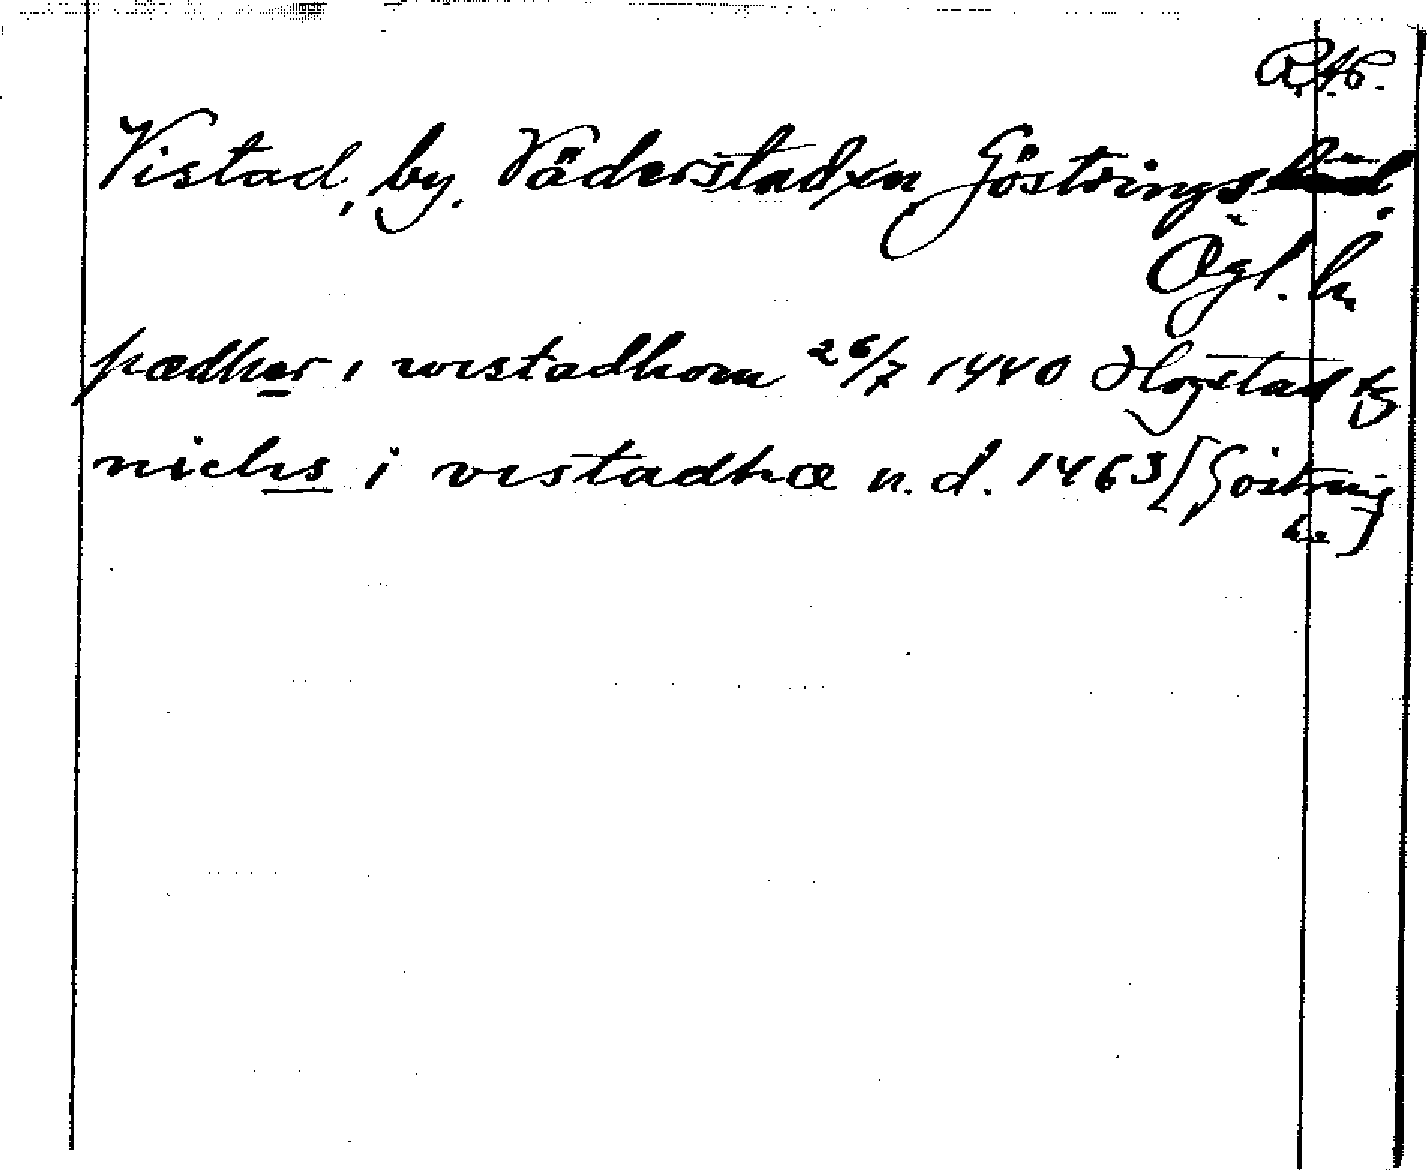 R.A.P.
Vistad, by. Väderstad sn Göstrings
Ögl. l.
pædher i wistadhom 26/7 1440 Hogstad
nichs i vistadhæ n.d. 1463 [Göstring
h.]